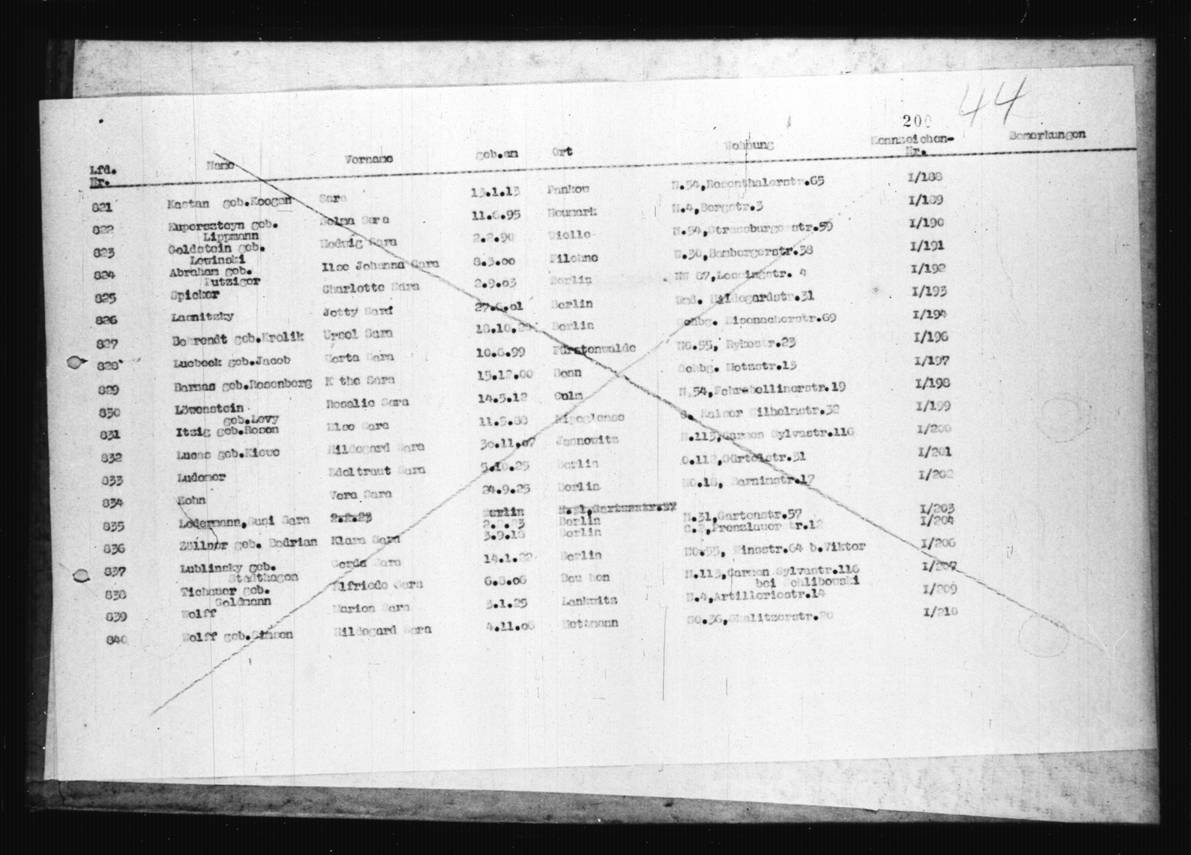 44
200
Lfd. Nr. Name Vorname geb.am Ort Wohnung Kennzeichen-Nr. Bemerkungen
821 Kastan gob.Koogan Sara 13.1.13 Pankow N.54,Rosenthalerstr.65 I/188
822 Kuperssteyn gob. Lippmann Selma Sara 11.6.95 Neumark N.4,Bergstr.3 I/189
823 Goldstein gob. Lewinski Hedwig Sara 2.2.90 N.54,Strassburgerstr.59 I/190
824 Abraham gob. Putziger Ilse Johanna Sara 8.3.00 Filehne W.30,Bambergerstr.38 I/191
825 Spicker Charlotte Sara 2.9.03 Berlin NW 87,Lessingstr. 4 I/192
826 Lasnitzky Jetty Sara 27.6.01 Berlin Hildegardstr.31 I/193
827 Behrendt gob.Krolik Ursel Sara 18.10. Berlin Schbg. Eisenacherstr.69 I/194
828 Luebeck gob.Jacob Herta Sara 10.6.99 Fürstenwalde NO.55, Rykestr.23 I/196
829 Barnas gob.Rosenberg K the Sara 15.12.00 Bonn Schbg. Motzstr.13 I/197
830 Löwenstein gob.Levy Rosalie Sara 14.5.12 Culm N.54,Fehrbellinerstr.19 I/198
831 Itzig gob.Rosen Else Sara 11.5.88 Kaiser Wilhelmstr.32 I/199
832 Lucas gob.Kiewe Hildegard Sara 30.11.07 Janowitz N.113,Carmen Sylvastr.116 I/200
833 Ludomer Edeltraut Sara 5.10.25 Berlin O.112,Gürtelstr.31 I/201
834 Kohn Vera Sara 24.9.25 Berlin NO.18, Barnimstr.17 I/202
Berlin N.31,Gartenstr.57
835 Ledermann,Susi Sara 2.2.23 2.2.23 Berlin N.31,Gartenstr.57 I/203
836 Zöllner gob. Bedrian Klara Sara 3.9.16 Berlin C.2,Prenzlauer tr.12 I/204
837 Lublinsky gob. Stadthagen Gerda Sara 14.1.22 Berlin NO.55, Winsstr.64 b.Viktor I/206
838 Tichauer gob. Goldmann Elfriede Sara 6.8.06 N.113,Carmen Sylvastr.116 bei Schlibowski I/207
839 Wolff Marion Sara 3.1.25 Lankwitz N.4,Artilleriestr.14 I/209
840 Wolff gob.Simson Hildegard Sara 4.11.06 Mettmann SO.36,Skalitzerstr.20 I/210